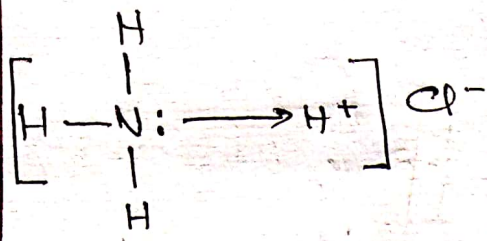 H
[H—N:⟶H⁺] Cl⁻
H